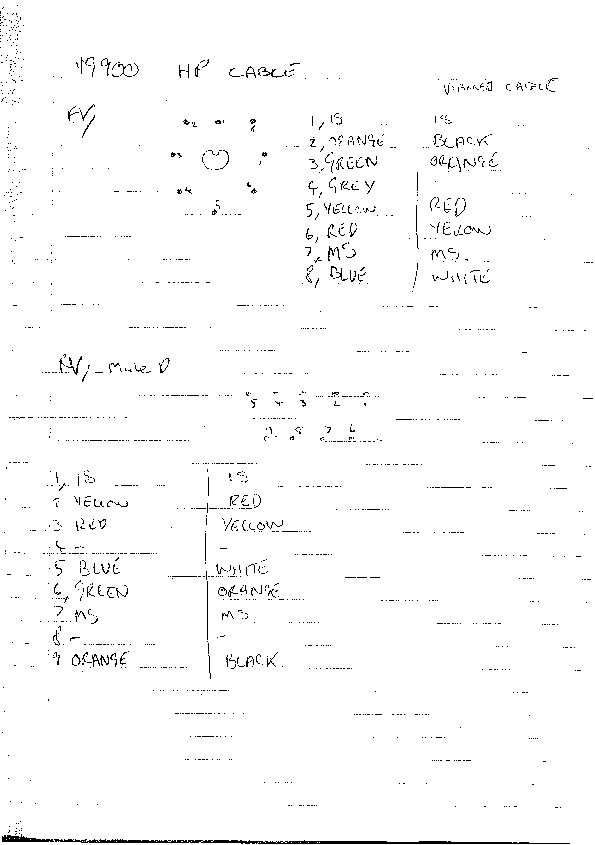 49900 HP CABLE
CABLE
FV/
2 1 8
3 7
4 6
5
1, IS IS
2, ORANGE BLACK
3, GREEN ORANGE
4, GREY
5, YELLOW RED
6, RED YELLOW
7, MS MS.
8, BLUE WHITE
RV/ - Male D
5 4 3 2 1
9 8 7 6
1, IS IS
2 YELLOW RED
3 RED YELLOW
4 - -
5 BLUE WHITE
6, GREEN ORANGE
7 MS MS
8 - -
9 ORANGE BLACK